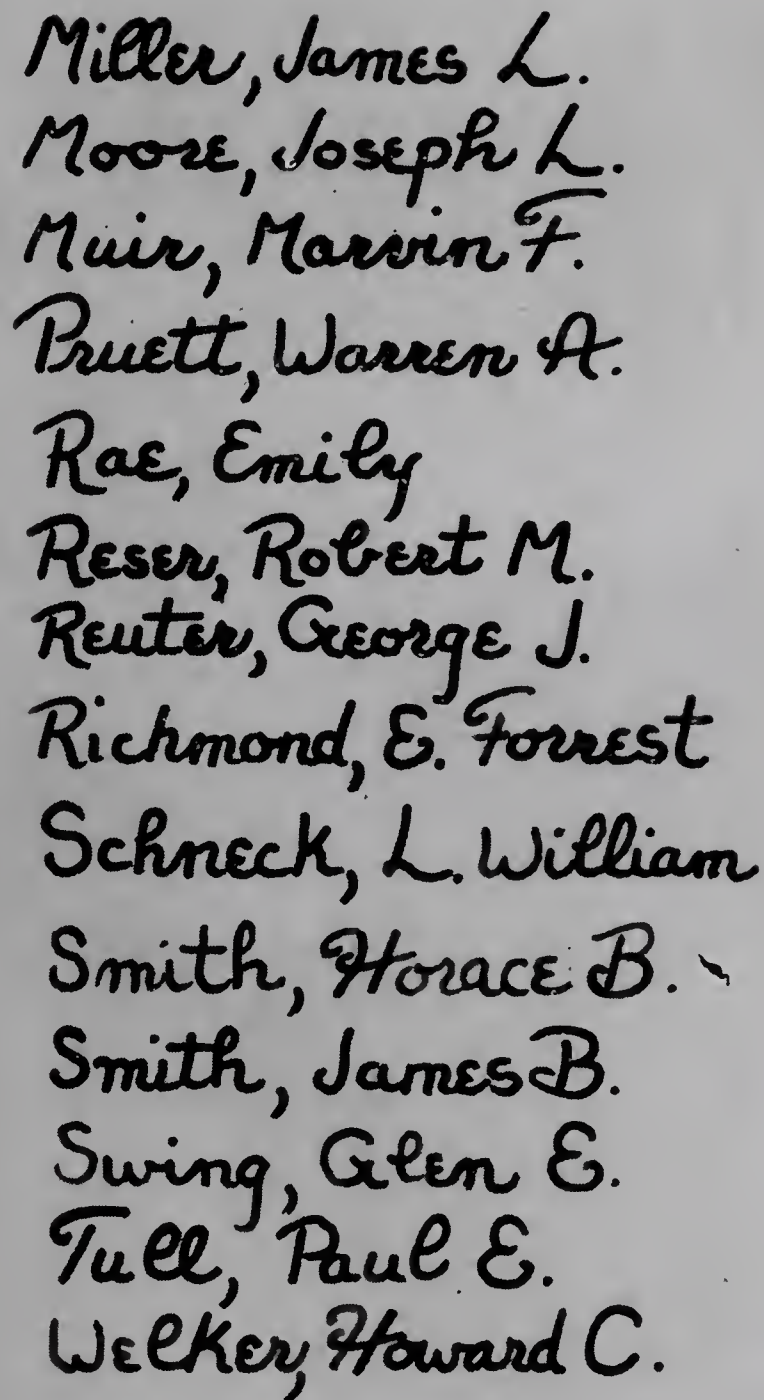 Miller, James L.
Moore, Joseph L.
Muir, Marvin F.
Pruett, Warren A.
Rae, Emily
Reser, Robert M.
Reuter, George J.
Richmond, E. Forrest
Schneck, L. William
Smith, Horace B.
Smith, James B.
Swing, Glen E.
Tull, Paul E.
Welker, Howard C.